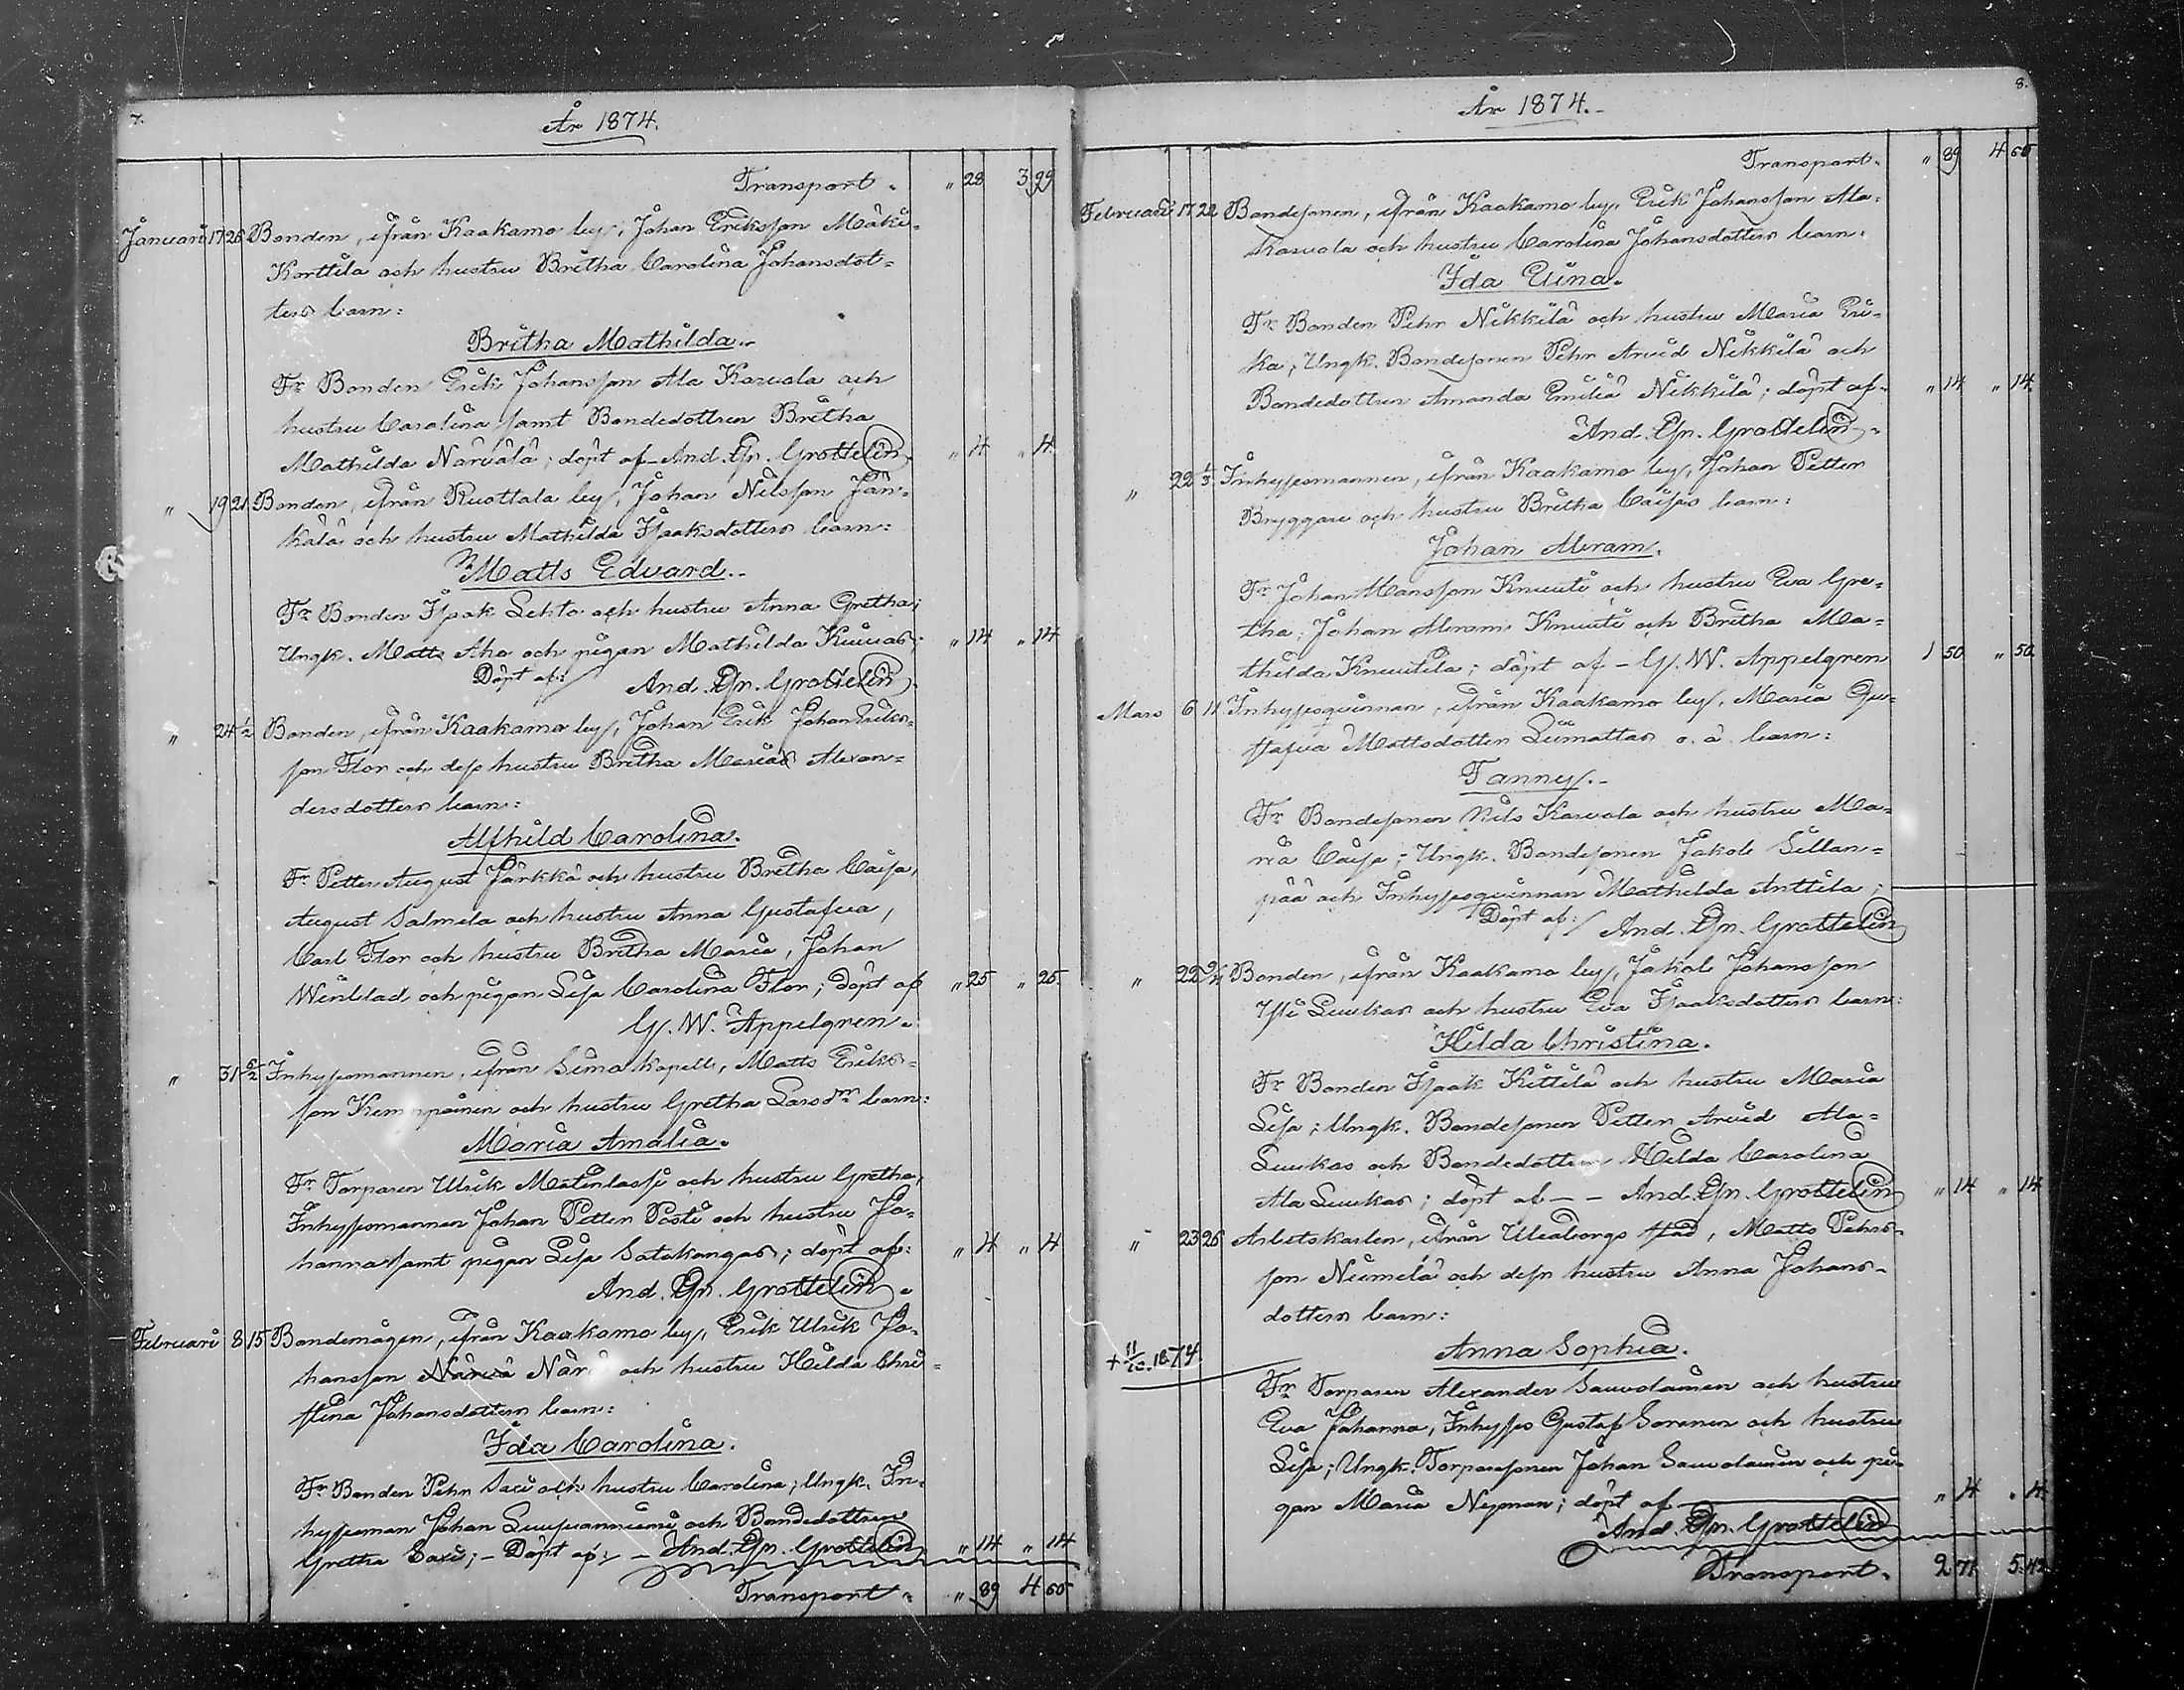 7.
År 1874.
Transport. " 28 3 99
Januari 17 26 Bonden, ifrån Kaakamo by, Johan Eriksson Mäki-
Korttila och hustru Britha Carolina Johansdot-
ters barn:
Britha Mathilda.
Fr Bonden Erik Johansson Ala Karvola och
hustru Carolina samt Bondedottren Britha
Mathilda Närvälä; döpt af And. Gr. Grottelin. " 4 " 4
" 19 21 Bonden, ifrån Ruottala by, Johan Nilsson Jän-
kälä och hustru Mathilda Isaksdotters barn:
Matts Edvard.
Fr Bonden Isak Lehto och hustru Anna Gretha;
Ungk. Matts Aho och pigan Mathilda " 14 " 14
Döpt af: And. Gr. Grottelin.
" 24 1/2 Bonden, ifrån Kaakamo by, Johan Erik Johan Eriks-
son Flor och dess hustru Britha Marias Alexan-
dersdotters barn:
Alfhild Carolina.
Fr Petter August Järkkä och hustru Britha Caisa,
August Salmela och hustru Anna Gustafva,
Carl Flor och hustru Britha Maria, Johan
Winblad och pigan Lisa Carolina Flor; döpt af " 25 " 25
G. W. Appelgren.
" 31 5/2 Inhysesmannen, ifrån Simo kapell, Matts Eriks-
son Kemppainen och hustru Gretha Larsdrs barn:
Maria Amalia.
Fr Torparen Ulrik Matinlassi och hustru Gretha,
Inhysesmannen Johan Petter Posti och hustru Jo-
hanna samt pigan Lisa Satakangas; döpt af: " 4 " 4
And. Gr. Grottelin.
Februari 8 15 Bondemågen, ifrån Kaakamo by, Erik Ulrik Jo-
hansson och hustru Hilda Chri-
stina Johansdotters barn:
Ida Carolina.
Fr Bonden Pehr Saxi och hustru Carolina; Ungk. In-
hysesman Johan och Bondedottren
Gretha Saxi; - Döpt af: - And. Gr. Grottelin " 14 " 14
Transport " 89 4 60
8.
År 1874.
Transport. " 89 4 60
Februari 17 22 Bondesonen, ifrån Kaakamo by, Erik Johansson Ala-
Karvola och hustru Carolina Johansdotters barn:
Ida Elina.
Fr Bonden Pehr Nikkilä och hustru Maria Eri-
ka, Ungk. Bondesonen Pehr Arvid Nikkilä och
Bondedottren Amanda Emilia Nikkilä; döpt af " 14 " 14
And. Gr. Grottelin.
" 22 1/3 Inhysesmannen, ifrån Kaakamo by, Johan Petter
Bryggare och hustru Britha Caisas barn:
Johan Abram.
Fr Johan Mansson Knuuti och hustru Eva Gre-
tha; Johan Abram Knuuti och Britha Ma-
thilda Knuutila; döpt af - G. W. Appelgren 1 50 " 50
Mars 6 11 Inhysesqvinnan, ifrån Kaakamo by, Maria Gu-
stafva Mattsdotter Liimattas o. ä. barn:
Fanny.
Fr Bondesonen Nils Karvola och hustru Ma-
ria Caisa; Ungk. Bondesonen Jakob Sillan-
pää och Inhysesqvinnan Mathilda Anttila;
Döpt af: And. Gr. Grottelin
" 22 Bonden, ifrån Kaakamo by, Jakob Johansson
Yli Luukas och hustru Eva Isaksdotters barn:
Hilda Christina.
Fr Bonden Isaak Kittilä och hustru Maria
Lisa; Ungk. Bondesonen Petter Arvid Ala-
Luukas och Bondedottren Hilda Carolina
Ala Luukas; döpt af - - And. Gr. Grottelin " 14 " 14
" 23 26 Arbetskarlen, ifrån Uleåborgs stad, Matts Pehrs-
son Niemelä och dess hustru Anna Johans-
dotters barn:
+ 11/10. 1874
Anna Sophia.
Fr Torparen Alexander Sauvolainen och hustru
Eva Johanna, Inhyses Gustaf Soronen och hustru
Lisa; Ungk. Torparesonen Johan Sauvolainen och pi-
gan Maria Nyman; döpt af " 4 " 4
And. Gr. Grottelin
Transport. 2 71 5 42